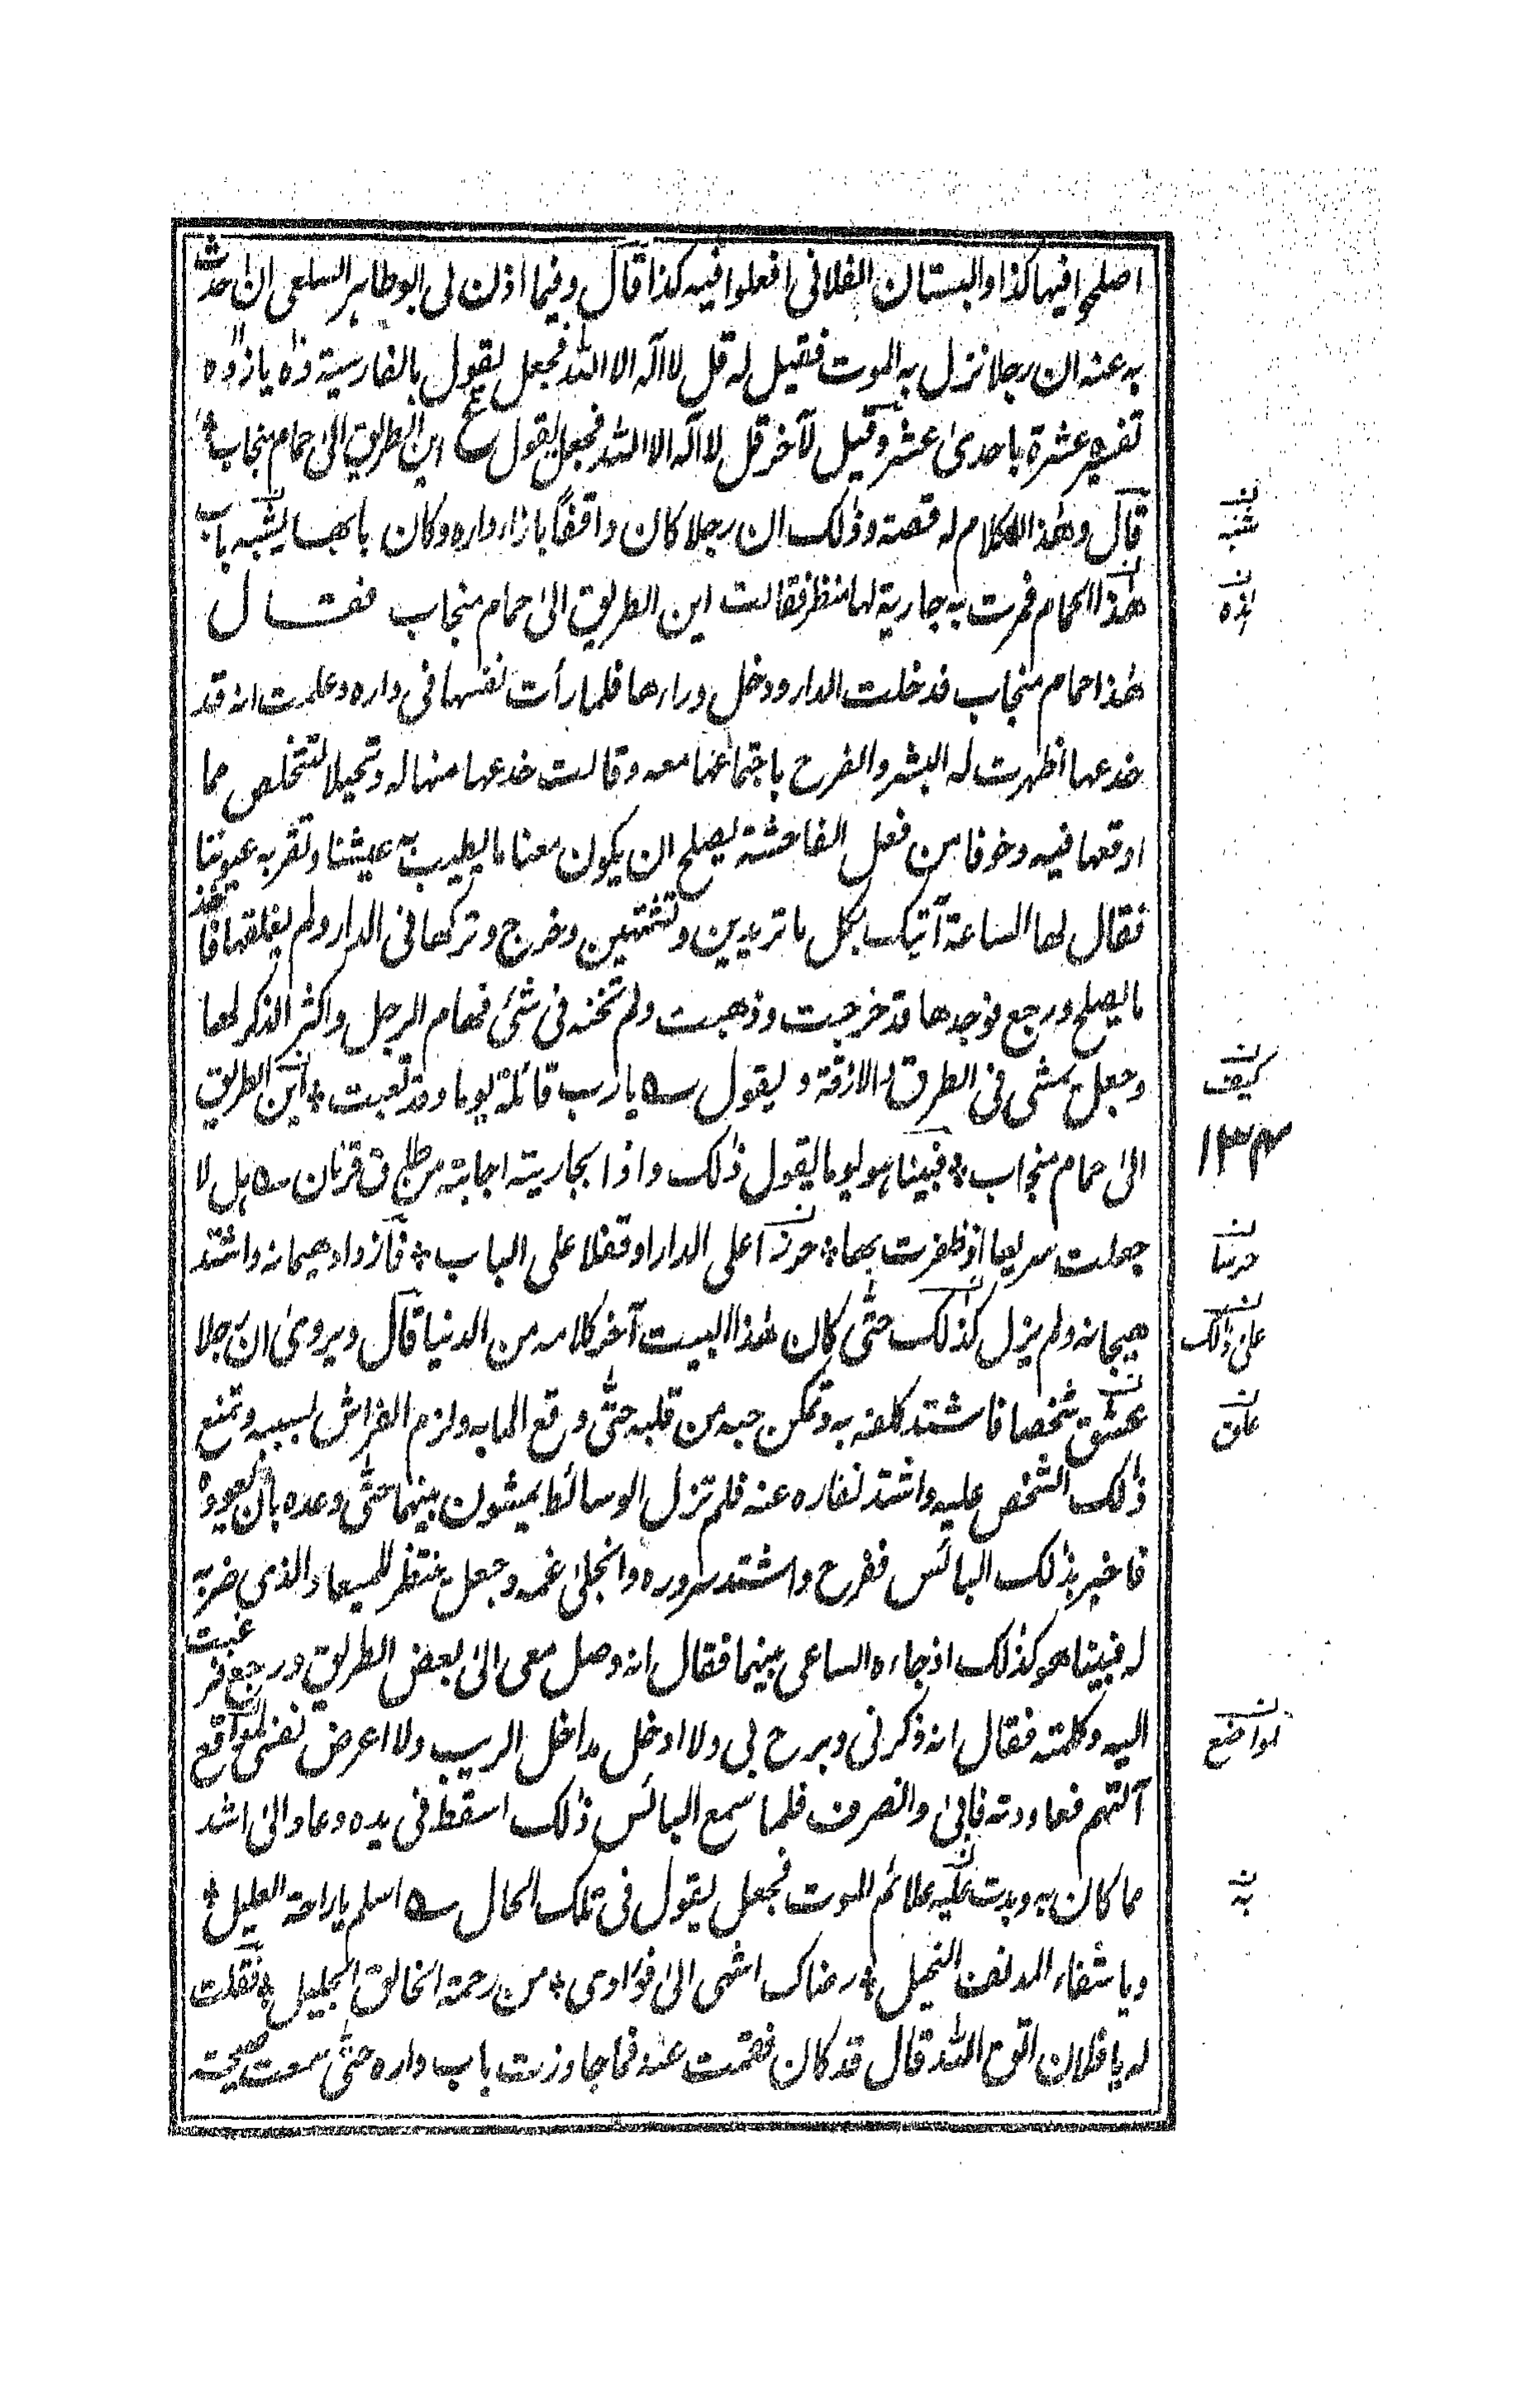 اصلحوا فيها كذا والبستان الفلانى افعلوا فيه كذا قال وفيما اذن لى ابو طاهر السلعى ان احدث
به عنه ان رجلا نزل به الموت فقيل له قل لا اله الا الله فجعل يقول بالفارسية ده يازده
تفسيره عشرة باحدى عشر وقيل لآخر قل لا اله الا الله فجعل يقول ع اين الطريق الى حمام منجاب
قال وهذا الكلام له قصة وذلك ان رجلا كان واقفًا بازاء داره وكان بابها يشبه باب
هذا الحمام فمرت به جارية لها منظر فقالت اين الطريق الى حمام منجاب فقال
هذا حمام منجاب فدخلت الدار ودخل وراءها فلما رأت نفسها فى داره وعلمت انه قد
خدعها اظهرت له البشر والفرح باجتماعها معه وقالت خدعها منها له وتحيلا لتتخلص مما
اوقعها فيه وخوفا من فعل الفاحشة يصلح ان يكون معنا ما يطيب به عيشنا وتقر به عيوننا
فقال لها الساعة آتيك بكل ما تريدين وتشتهين وخرج وتركها فى الدار ولم يغلقها فأخذ
ما يصلح ورجع فوجدها قد خرجت وذهبت ولم تخنه فى شئ فهام الرجل واكثر الذكر لها
وجعل يمشى فى الطرق والازقة ويقول يا رب قائلة يوما وقد تعبت * اين الطريق
الى حمام منجاب * فبينا هو يوما يقول ذلك واذا بجارية اجابته من طاق قرنان هل لا
جعلت سريعا اذ ظفرت بها * حرزا على الدار او قفلا على الباب * فازداد هيمانه واشتد
هيجانه ولم يزل كذلك حتى كان هذا البيت آخر كلامه من الدنيا قال ويروى ان رجلا
عشق شخصا فاشتد كلفه به وتمكن حبه من قلبه حتى وقع المابه ولزم الفراش بسببه وتمنع
ذلك الشخص عليه واشتد نفاره عنه فلم تزل الوسائط يمشون بينهما حتى وعده بان يعوده
فاخبر بذلك البائس ففرح واشتد سروره وانجلى غمه وجعل ينتظر للميعاد الذى ضربه
له فبينا هو كذلك اذ جاءه الساعى بينهما فقال انه وصل معى الى بعض الطريق ورجع فرغبت
اليه وكلمته فقال انه ذكرنى وبرح بى ولا ادخل مداخل الريب ولا اعرض نفسى لمواقع
التهم فعاودته فابى وانصرف فلما سمع البائس ذلك اسقط فى يده وعاد الى اشد
مما كان به وبدت عليه علائم الموت فجعل يقول فى تلك الحال اسلم يا راحة العليل *
ويا شفاء المدنف النحيل * رضاك اشهى الى فؤادى * من رحمة الخالق الجليل * فقلت
له يا فلان اتق الله قال قد كان فقمت عنه فما جاوزت باب داره حتى سمعت صيحة
هذه
كيف
١٣٤
على ذلك
علق
لمواضع
به